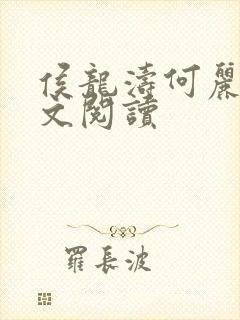 侯龍濤何麗
文閱讀
羅長波